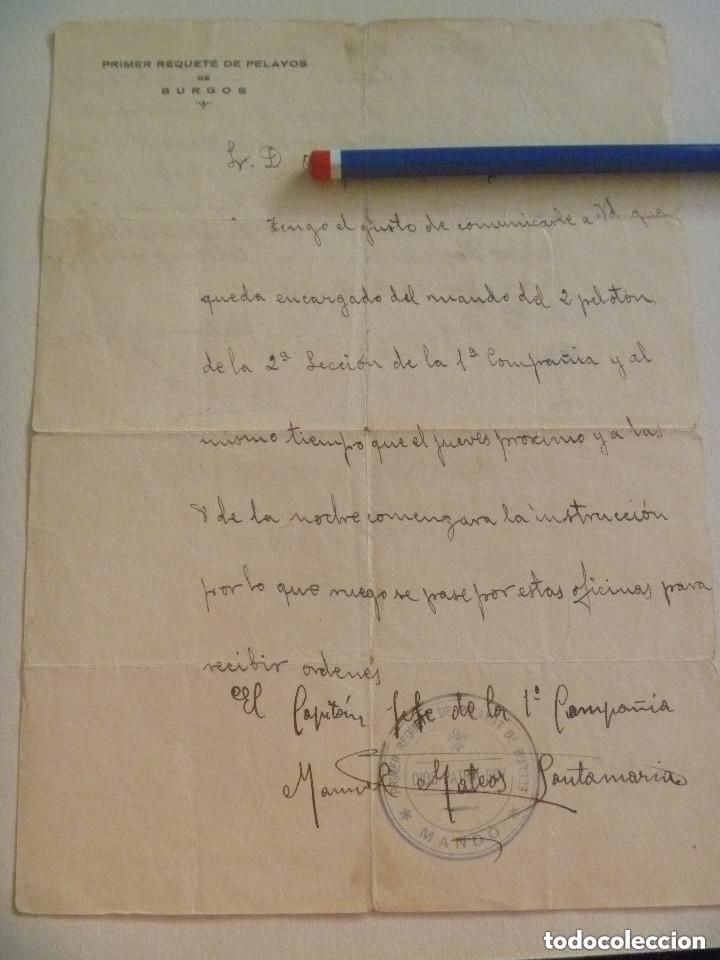 PRIMER REQUETÉ DE PELAYOS
DE
BURGOS
Sr. D
Tengo el gusto de comunicarle a Vd que
queda encargado del mando del 2 pelotón
de la 2ª Sección de la 1ª Compañia y al
mismo tiempo que el jueves proximo y a las
8 de la noche comenzara la instrucción
por lo que ruego se pase por estas oficinas para
recibir ordenes
El Capitán Jefe de la 1ª Compañia
Manuel Mateos Santamaria
PRIMER REQUETÉ DE
MANDO
todocoleccion
todocoleccion.net